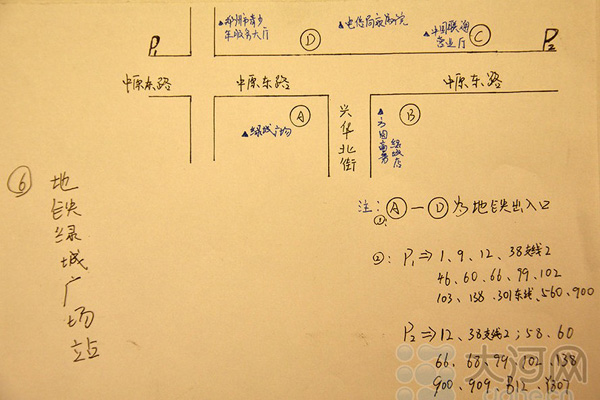 P1
▲郑州市老乡
年服务大厅
D
▲电信局家属院
▲中国联通
营业厅
C
P2
中原东路
中原东路
中原东路
A
▲绿城广场
兴华北街
▲
绿城店
B
⑥
地铁绿城广场站
注:①: A — D 为地铁出入口
②: P1 ⇒ 1、9、12、38支线2
46、60、66、99、102
103、138、301东线、560、900
P2 ⇒ 12、38支线2；58、60
66、68、99、102、138
900、909、B12、Y807
大河网